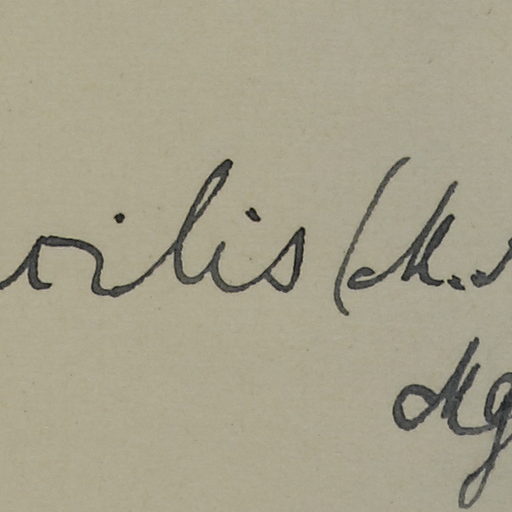 rilis (M.
Mg